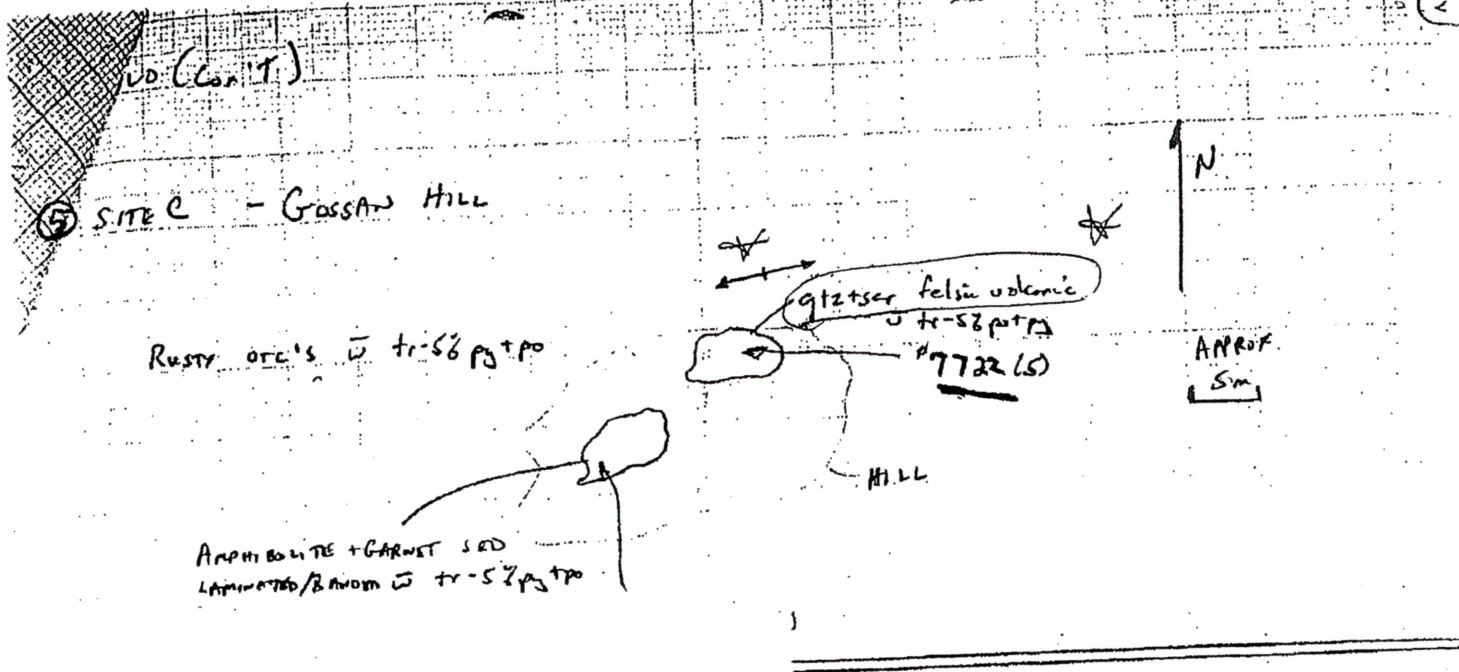 (Con'T)
⑤ SITE C - GOSSAN HILL
N
qtz+ser felsic volcanic
w̄ tr-5% po+py
#7722 (S)
RUSTY OTC'S w̄ tr-5% py+po
APPROX
5m
HILL
AMPHIBOLITE + GARNET SED
LAMINATED/BANDED w̄ tr-5% py+po